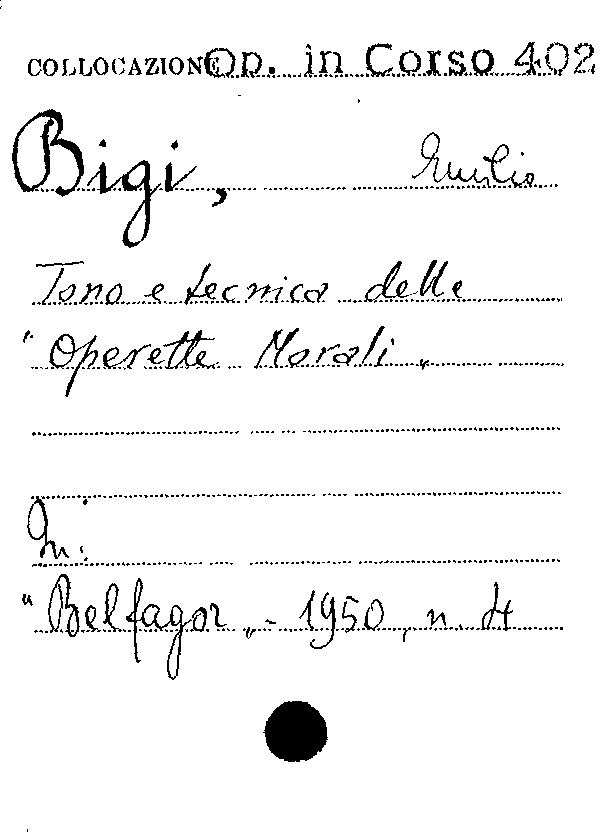 COLLOCAZIONE Op. in Corso 402
Bigi, Emilio
Tono e tecnica delle
"Operette Morali"
In:
"Belfagor" - 1950, n. 4